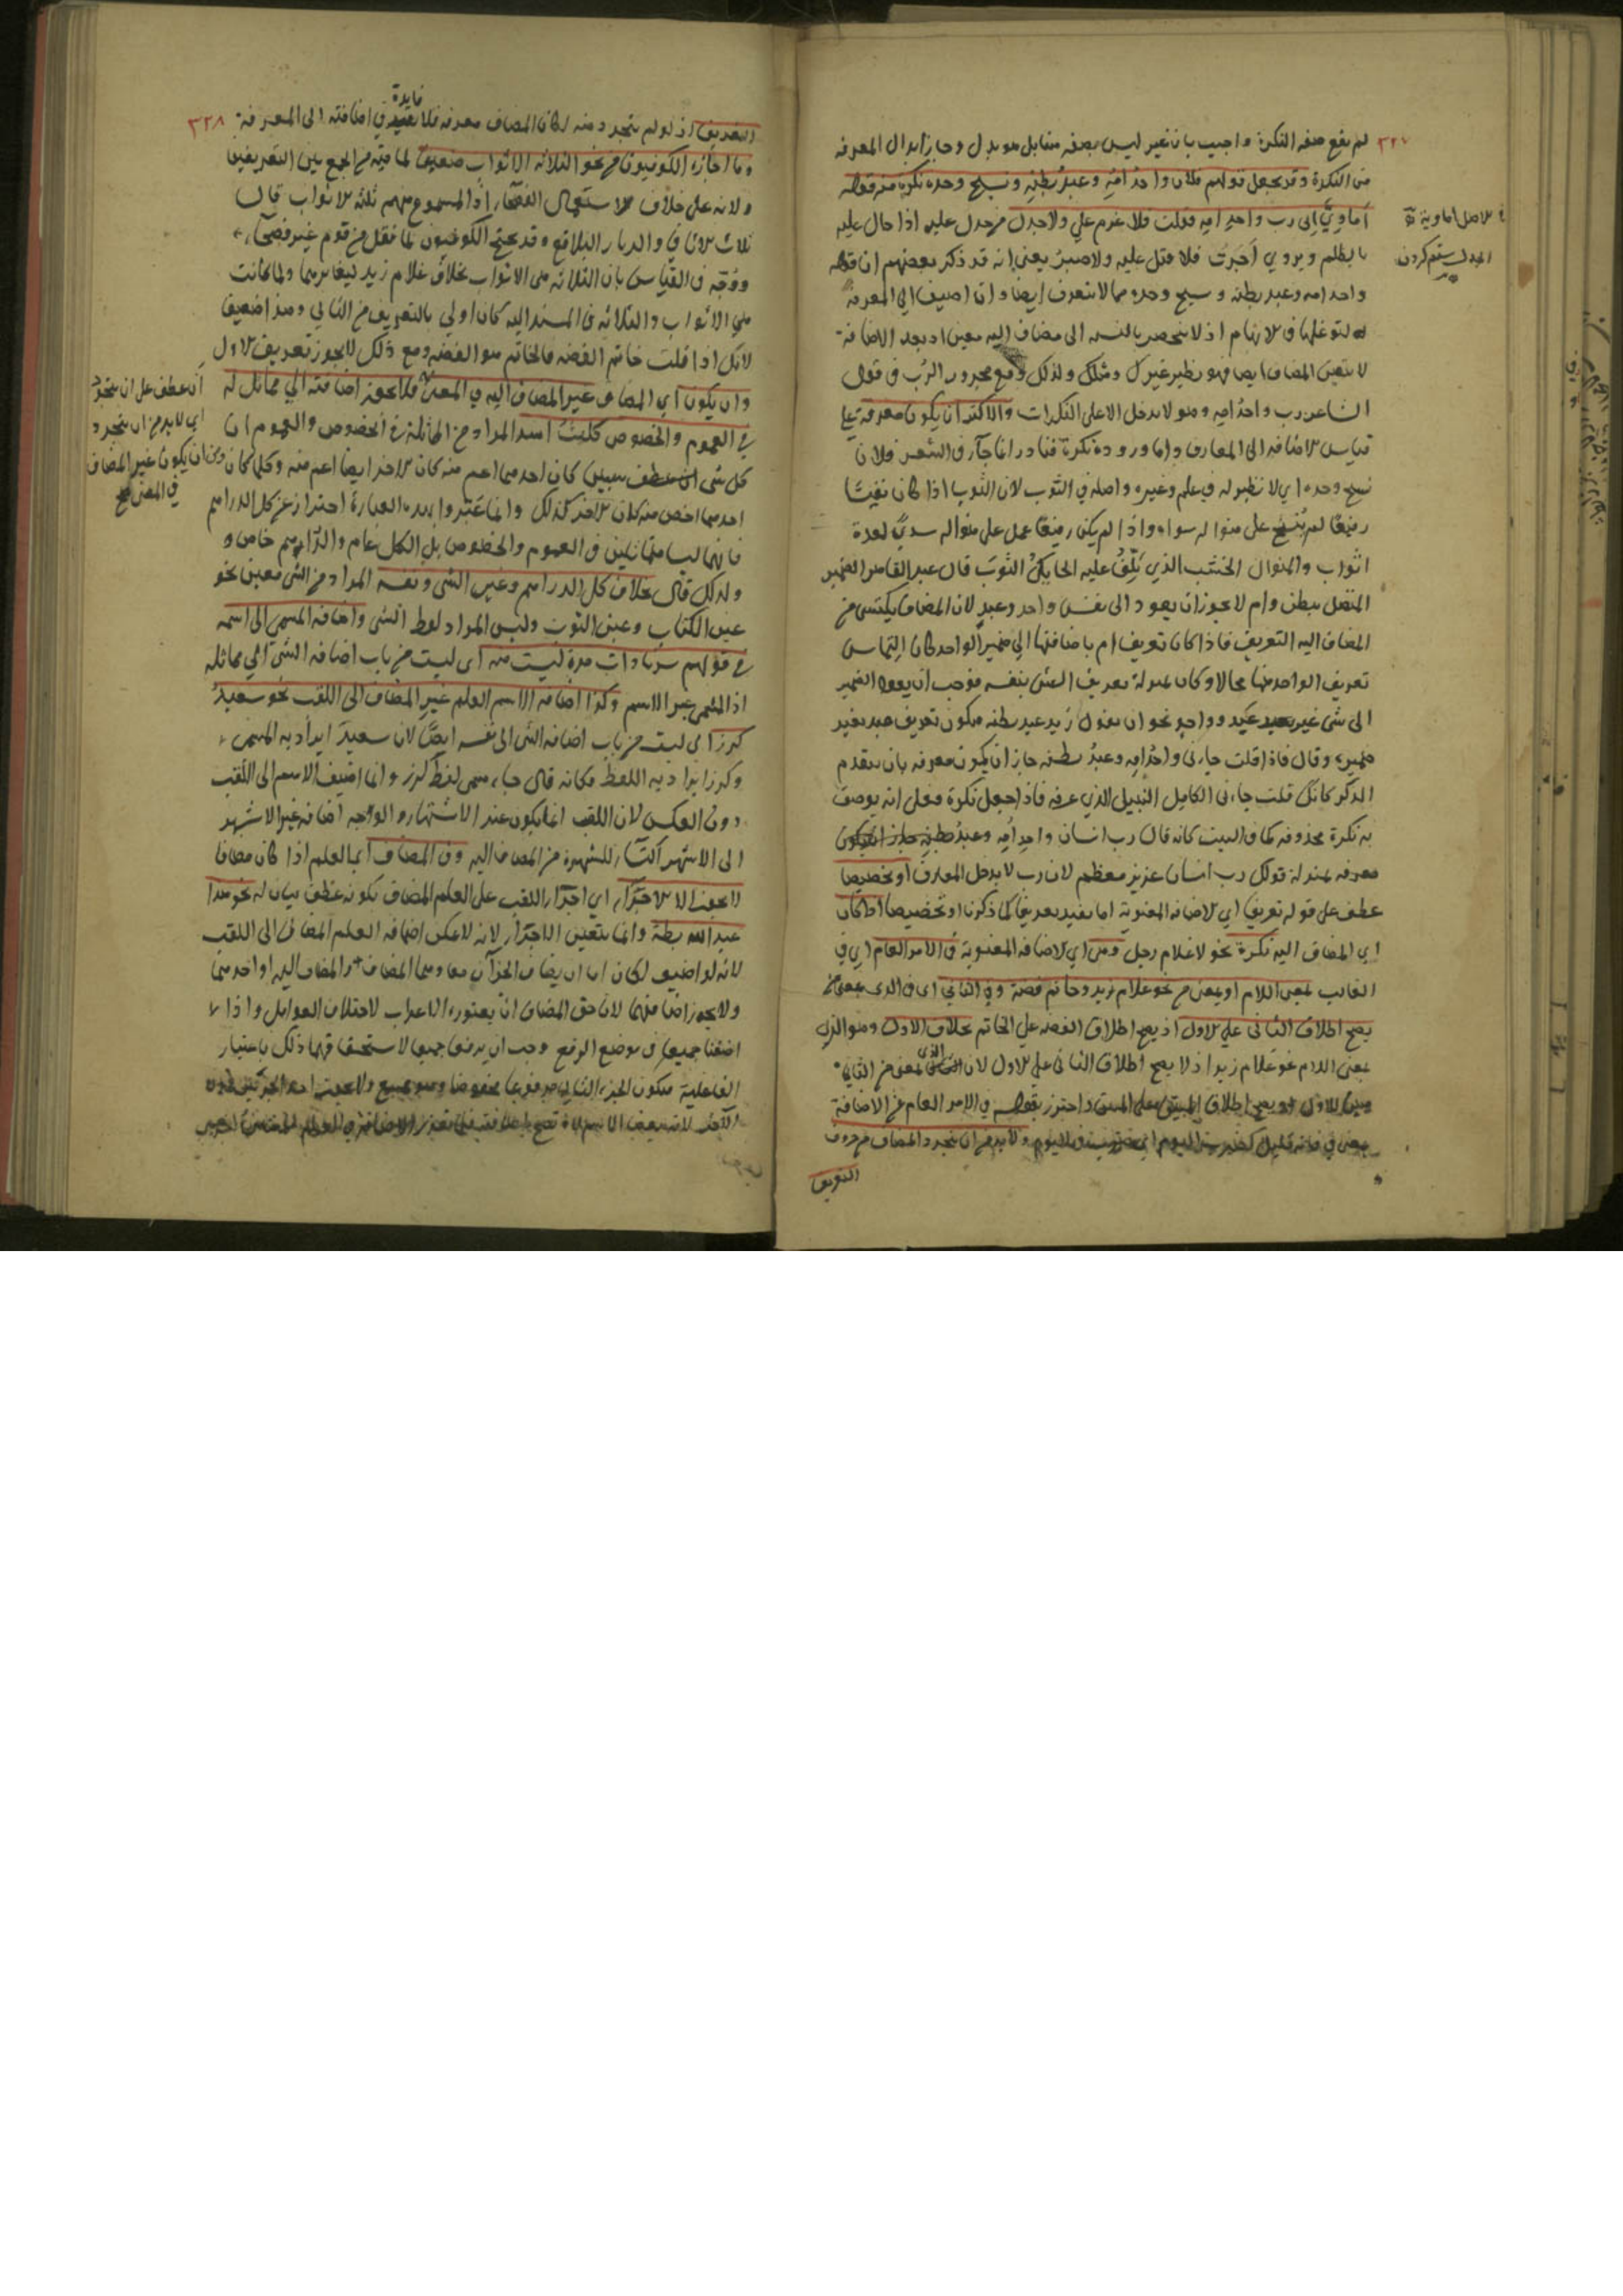 ٣٢٧
لم يقع صفه النكرة واجيب بان غير ليس بصفه متقابل هو بدل وجاز ابدال المعرفه
من النكرة وقد يجعل قولهم فلان واحد امه وعبد بطنه ونسيج وحده نكرة منه قوله
اماوي اني رب واحد امه فقلت فلا غرم علي ولا جدل من جدل عليه اذا حال عليه
بالظلم ويروي اجرت فلا قتل عليه ولا يعني انه قد ذكر بعضهم ان قوله
واحد امه وعبد بطنه ونسيج وحده مما لا يتعرف ايضا وان اضيف الي المعرفة
لتوغلها في الابهام اذ لا ينحصر بالنسبه الى مضاف اليه معين اذ بعد الاضافة
لا يتعين المضاف ايضا فهو نظير غيرك ومثلك ولذلك وقع مجرور الرب في قول
الشاعر رب واحد امه وهو لا يدخل الا على النكرات والاكثر ان يكون معرفة علي
قياس الاضافه الى المعارف واما وروده نكرة فنادر انما جآء في الشعر فلان
نسيج وحده اي لا نظير له في علم وغيره واصله في الثوب لان الثوب اذا كان نفيسا
رفيعا لم ينسج على منواله سواه واذا لم يكن رفيعا عمل على منواله سدي لعدة
اثواب والمنوال الخشب الذي يلف عليه الحايك الثوب قال عبد القاهر الضمير
المتصل ببطن وام لا يجوز ان يعود الى نفس واحد وعبد لان المضاف يكتسي من
المضاف اليه التعريف فاذا كان تعريف ام باضافتها الي ضمير الواحد كان التماس
تعريف الواحد منها محالا وكان بمنزلة تعريف الشئ بنفسه فوجب ان يعود الضمير
الى شى غير عبد وواحد نحو ان يقول زيد عبد بطنه فيكون تعريف عبد بغير
ضميره وقال فاذا قلت جاءني واحد امه وعبد بطنه جاز ان يكون معرفه بان يتقدم
الذكر كانك قلت جاءنى الكامل النبيل الذي عرفه فاذا جعل نكرة فعلى انه يوصف
به نكرة محذوفه كما في البيت كانه قال رب انسان واحد امه وعبد بطنه جاز ان يكون
معرفه بمنزلة قولك رب انسان عزيز معظم لان رب لا يدخل المعارف او تخصيصا
عطف على قوله تعريفا اي الاضافه المعنوية اما يفيد تعريفا كما ذكرنا او تخصيصا اذا كان
اي المضاف اليه نكرة نحو غلام رجل وهي اي الاضافه المعنوية في الامر العام اي في
الغالب بمعنى اللام او بمعنى من نحو غلام زيد وخاتم فضة وفي الثاني اى في الذى بمعنى من
يصح اطلاق الثانى علي الاول اذ يصح اطلاق الفضه علي الخاتم بخلاف الاول وهو الذي
بمعنى اللام نحو غلام زيد اذ لا يصح اطلاق الثانى علي الاول لان الذي بمعنى من الثاني
مبين للاول فيصح اطلاق المبين على المبين واحترز بقوله في الامر العام عن الاضافة
بمعنى في فانه قليل كضرب اليوم اي ضرب في اليوم ولا بد من ان يتجرد المضاف من حروف
التعريف
الاصل اماوية
الجدل ستم كردن
٣٢٨
التعريف اذ لو لم يتجرد منه لكان المضاف معرفه فلا فايدة في اضافته الى المعرفة
وما اجازه الكوفيون من نحو الثلاثه الاثواب ضعيف لما فيه من الجمع بين التعريفين
ولانه على خلاف الاستعمال الفصحاء اذ المسموع منهم ثلثة الاثواب قال
ثلاث الاثافي والديار البلاقع وقد يحتج الكوفيون بما نقل من قوم غير فصحآء
ووجه في القياس بان الثلاثه هي الاثواب بخلاف غلام زيد ليغايرهما ولما كانت
هي الاثواب والثلاثه في المسند اليه كان اولى بالتعريف من الثاني وهذا ضعيف
لانك اذا قلت خاتم الفضه فالخاتم هو الفضه ومع ذلك لا يجوز تعريف الاول
وان يكون اي المضاف غير المضاف اليه في المعنى فلا يجوز اضافته الي مماثل له
في العموم والخصوص كليث اسد المراد من المماثلة في الخصوص والعموم ان
كل شى كان احدهما اعم منه كان الاخر ايضا اعم منه وكلما كان
احدهما اخص منه كان الاخر كذلك وانما عبروا بهذه العبارة احترازا عن كل الدراهم
فانهما ليسا متماثلين في العموم والخصوص بل الكل عام والدراهم خاص و
ولذلك قال بخلاف كل الدراهم وعين الشى ونفسه المراد من الشى معين نحو
عين الكتاب وعين الثوب وليس المراد لفظ الشى واضافه المسمى الى اسمه
في قولهم سرنا ذات مرة ليست منه اى ليست من باب اضافه الشى الي مماثله
اذ المسمى غير الاسم وكذا اضافه الاسم العلم غير المضاف الى اللقب نحو سعيد
كرز اى ليست من باب اضافه الشى الى نفسه ايضا لان سعيد يراد به المسمى
وكرز يراد به اللفظ فكانه قال جاء مسمى لفظ كرز وانما اضيف الاسم الى اللقب
دون العكس لان اللقب انما يكون عند الاشتهار والواجه اضافه غير الاشهر
الى الاشهر اكتساب للشهرة من المضاف اليه وفى المضاف اي العلم اذا كان مضافا
لا يجوز الا الاجراء اي اجراء اللقب على العلم المضاف بكونه عطف بيان له نحو هذا
عبد الله بطة وانما يتعين الاجراء لانه لا يمكن اضافه العلم المضاف الى اللقب
لانه لو اضيف لكان اما ان يضاف الجزآن معا وهما المضاف والمضاف اليه او احدهما
ولا يجوز اضافتهما لان حق المضاف ان يعتوره الاعراب لاختلاف العوامل واذا
اضفنا جميعا في موضع الرفع وجب ان يرفعا جميعا لاستحقاقهما ذلك باعتبار
الفاعلية فيكون الجزء الثاني مرفوعا مخفوضا وهو ممتنع ولا يجوز احد الجزئين دون
الآخر لانه بعض الاسم
أى عطف على ان يتجرد
اي لا بد من ان يتجرد
ومن ان يكون غير المضاف
في المعنى صح